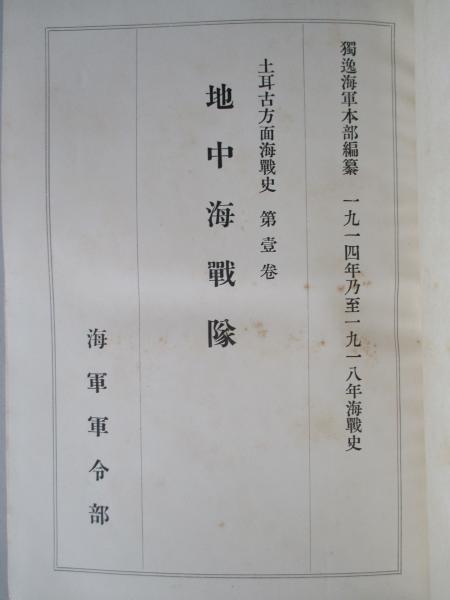 獨逸海軍本部編纂 一九一四年乃至一九一八年海戰史
土耳古方面海戰史 第壹卷
地中海戰隊
海軍軍令部